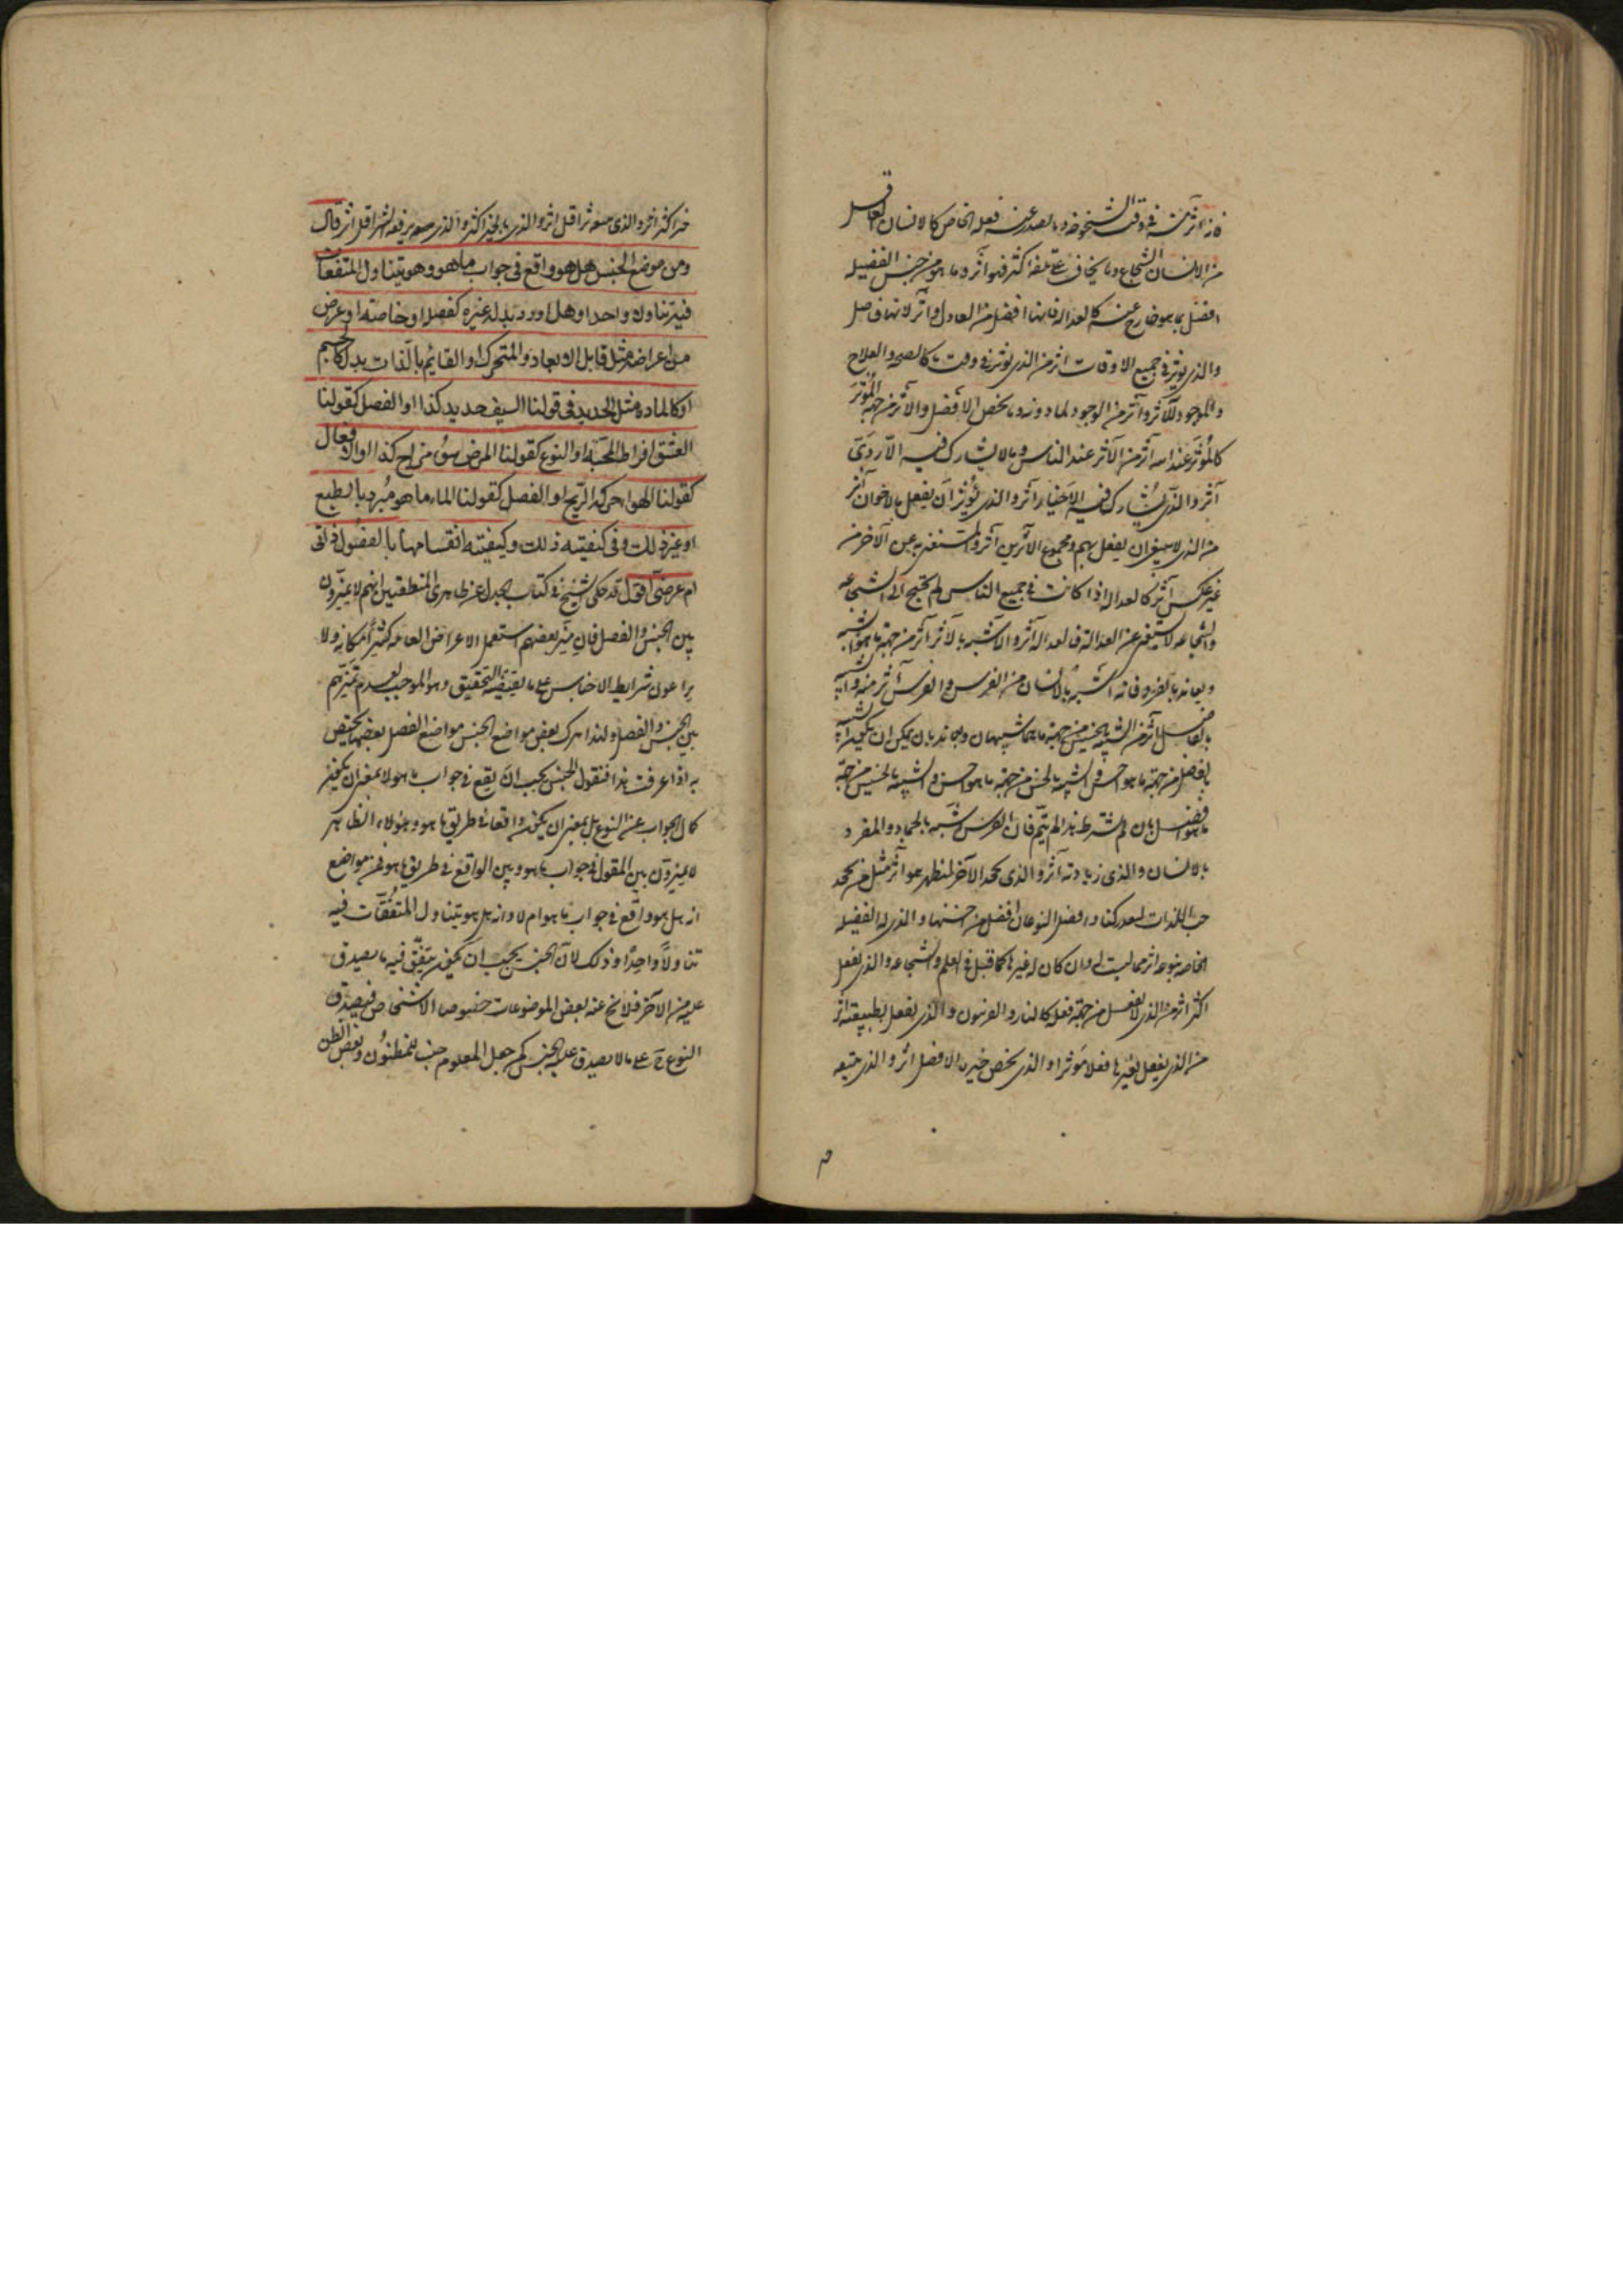 فانه آثر منه فى وقت الشيخوخة وما يصدر عنه فعله الخاص كالانسان الفاضل
من الانسان الشجاع وما يخاف على فقده اكثر فهو آثر وما هو من جنس الفضيلة
افضل مما هو خارج عنه كالعدالة فانها افضل من العادل وآثر لانها فاضل
والذى يؤثر فى جميع الاوقات آثر من الذى يؤثر فى وقت ما كالصحة والعلاج
والموجود للآثر وآثر من الموجود لما دونه وما يخص الافضل والآثر من جهة المؤثر
كالمؤثر عند الله آثر من الآثر عند الناس وما لا يشارك فيه الاردى
آثر والذى يشارك فيه الاخيار آثر والذى يؤثر ان يفعل بالاخوان آثر
من الذى لا ان يفعل بهم ومجموع الآثرين آثر والمستغنى به عن الآخر من
غير عكس آثر كالعدالة اذا كانت فى جميع الناس لم يحتج الى الشجاعة
والشجاعة لا تستغنى عن العدالة فالعدالة آثر والاشبه بالآثر آثر من جهة ما هو اشبه
ويعاند بالقرد فانه اشبه بالانسان من الفرس والفرس آثر منه والشبيه
بالفاضل آثر من الشبيه بالخسيس من جهة ما هما شبيهان ويعاند بان يمكن ان يكون الشبيه
بالافضل من جهة ما هو اخس والشبيه بالاخس من جهة ما هو احسن والشبيه بالخسيس من جهة
ما هو افضل بان لم يشترط هذا لم يتم فان الفرس شبه بالحمار والقرد
بالانسان والذى زيادته آثر والذى يجحد الآخر ليظهر هو آثر مثل من يجحد
حب اللذات وافضل النوعان افضل من جنسها والذى له الفضيلة
الخاصة بنوعه آثر مما ليست له وان كان له غيرها كما قيل فى العلم والشجاعة والذى يفعل
اكثر آثر من الذى لا يفعل من جهة فعله كالنار والذى يفعل بطبيعته آثر
من الذى يفعل بغيرها فعلا مؤثرا والذى يخص خيره الافضل آثر والذى يتبعه
خير اكثر آثر والذى يتبعه شر اقل آثر والذى بالخير اكثر والذى معه يرفعه الشر اقل آثر قال
ومن موضع الجنس هل هو واقع فى جواب ما هو وهو يتناول المتفقات
فيه تناولا واحدا وهل اورد بدله غيره كفصل او خاصته او عرض
من اعراضه مثل قابل الابعاد والمتحرك او القائم بالذات بدل الجسم
او كالمادة مثل الحديد فى قولنا السيف حديد كذا او الفصل كقولنا
العشق افراط المحبة او النوع كقولنا المرض سوء مزاج كذا او الافعال
كقولنا الهواء حركة الريح او الفصل كقولنا الماء ما هو مبرد بالطبع
او غير ذلك وفى كيفيته ذلك وكيفيته انقسامها بالفصول ذاتى
ام عرضى اقول قد حكى الشيخ فى كتاب الجدل عن ظاهرى المنطقيين انهم لا يميزون
بين الجنس والفصل فان ميز بعضهم استعمل الاعراض العامة كثيرا مكانه ولا
يراعون شرايط الاجناس على ما يقتضيه التحقيق وهو الموجب لعدم تميزهم
بين الجنس والفصل ولهذا يترك بعض مواضع الجنس مواضع الفصل بعضها يختص
به اذا عرفت هذا فنقول الجنس يجب ان يقع فى جواب ما هو لا بمعنى ان يكون
كل الجواب عن النوع بل بمعنى ان يكون واقعا فى طريق ما هو وهؤلاء الظاهر
لا يميزون بين المقول فى جواب ما هو وبين الواقع فى طريق ما هو فمن مواضع
انه هل هو واقع فى جواب ما هو ام لا وانه هل هو يتناول المتفقات فيه
تناولا واحدا وذلك لان الجنس يجب ان يكون يتفق فيه ما يصدق
عليه من الآخر فلا يخ عنه بعض الموضوعات خصوصا الاشخاص فيصدق
النوع ح على ما لا يصدق عليه الجنس كمن جعل المعلوم جنسا للمظنون وبعض الظن